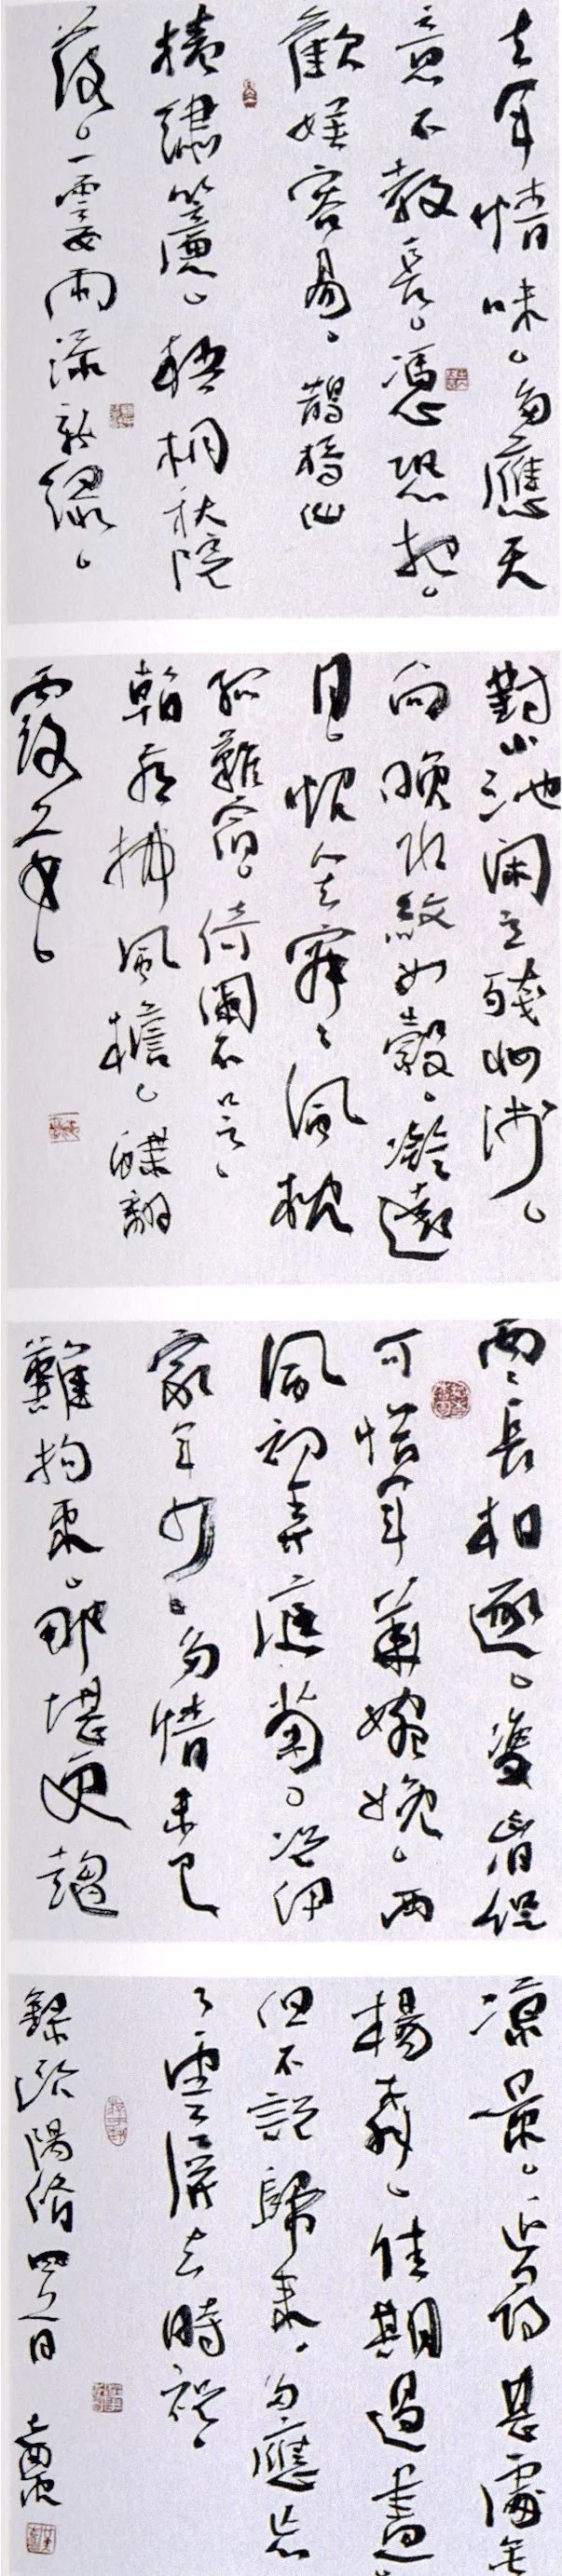 去年情味。多應天
意不教長。憑恐把。
歡娛容易。鵲橋仙
捲繡簾。梧桐秋院
落。一霎雨添新綠。
對小池閑立殘妝淺。
向晚水紋如縠。凝遠
目。恨人去寂寂鳳枕
孤難宿。倚闌不足。
看燕拂風檐。蝶翻
露草。
兩兩長相逐。雙眉促
可惜年華婉娩。西
風初弄庭菊。況伊
家年少。多情未已
難拘束。那堪更趁
涼景。追尋甚處垂
楊曲。佳期過盡
但不說歸來。多應忘
了雲屏去時祝。
錄歐陽修